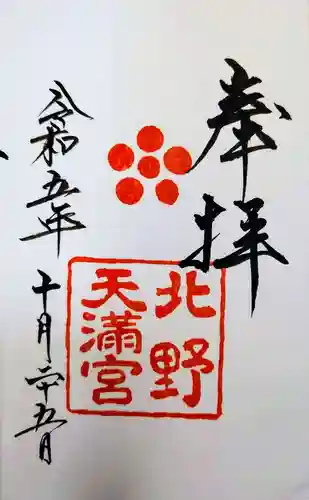 奉拝
北野
天満宮
令和五年
十月二十五日